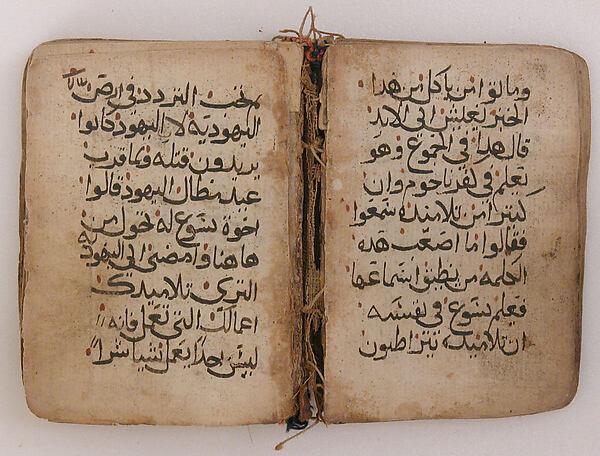 وماتوا من ياكل من هدا
الخبز يعيش الى الابد
قال هدا في الجموع وهو
يعلم في كفرناحوم وان
كثيرا من تلاميذه سمعوا
فقالوا ما اصعب هده
الكلمه من يطيق استماعها
فعلم يشوع في نفسه
ان تلاميذه يتراطنون
يحب التردد في ارض
اليهوديه لان اليهود كانوا
يريدون قتله ولما قرب
عيد مظال اليهود قالوا
اخوة يشوع له تحول من
هاهنا وامضى الى اليهوديه
لترى تلاميدك
اعمالك التي تعمل فانه
ليس احدا يعمل شيا سرا